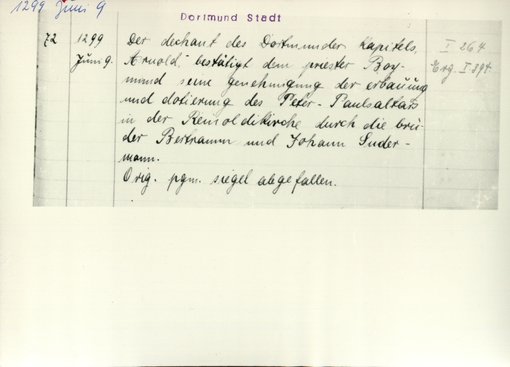 1299 Juni 9
Dortmund Stadt
72 1299 Der dechant des Dortmunder kapitels, I 264
Juni 9. Arnold, bestätigt dem priester Boy- Erg. I 894
mund seine genehmigung der erbauung
und dotierung des Peter-Paulsaltars
in der Reinoldikirche durch die brü-
der Bertramm und Johann Suder-
mann.
Orig. pgm. siegel abgefallen.